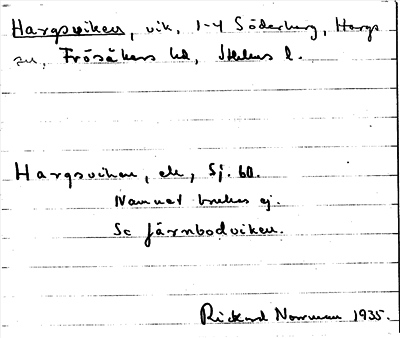 Hargsviken, vik, 1-4 Söderharg, Hargs
sn, Frösåkers hd, Sthlms l.
Hargsviken, ek, Sj. bl.
Namnet brukas ej.
Se Järnbodviken.
Rickard Norrman 1935.